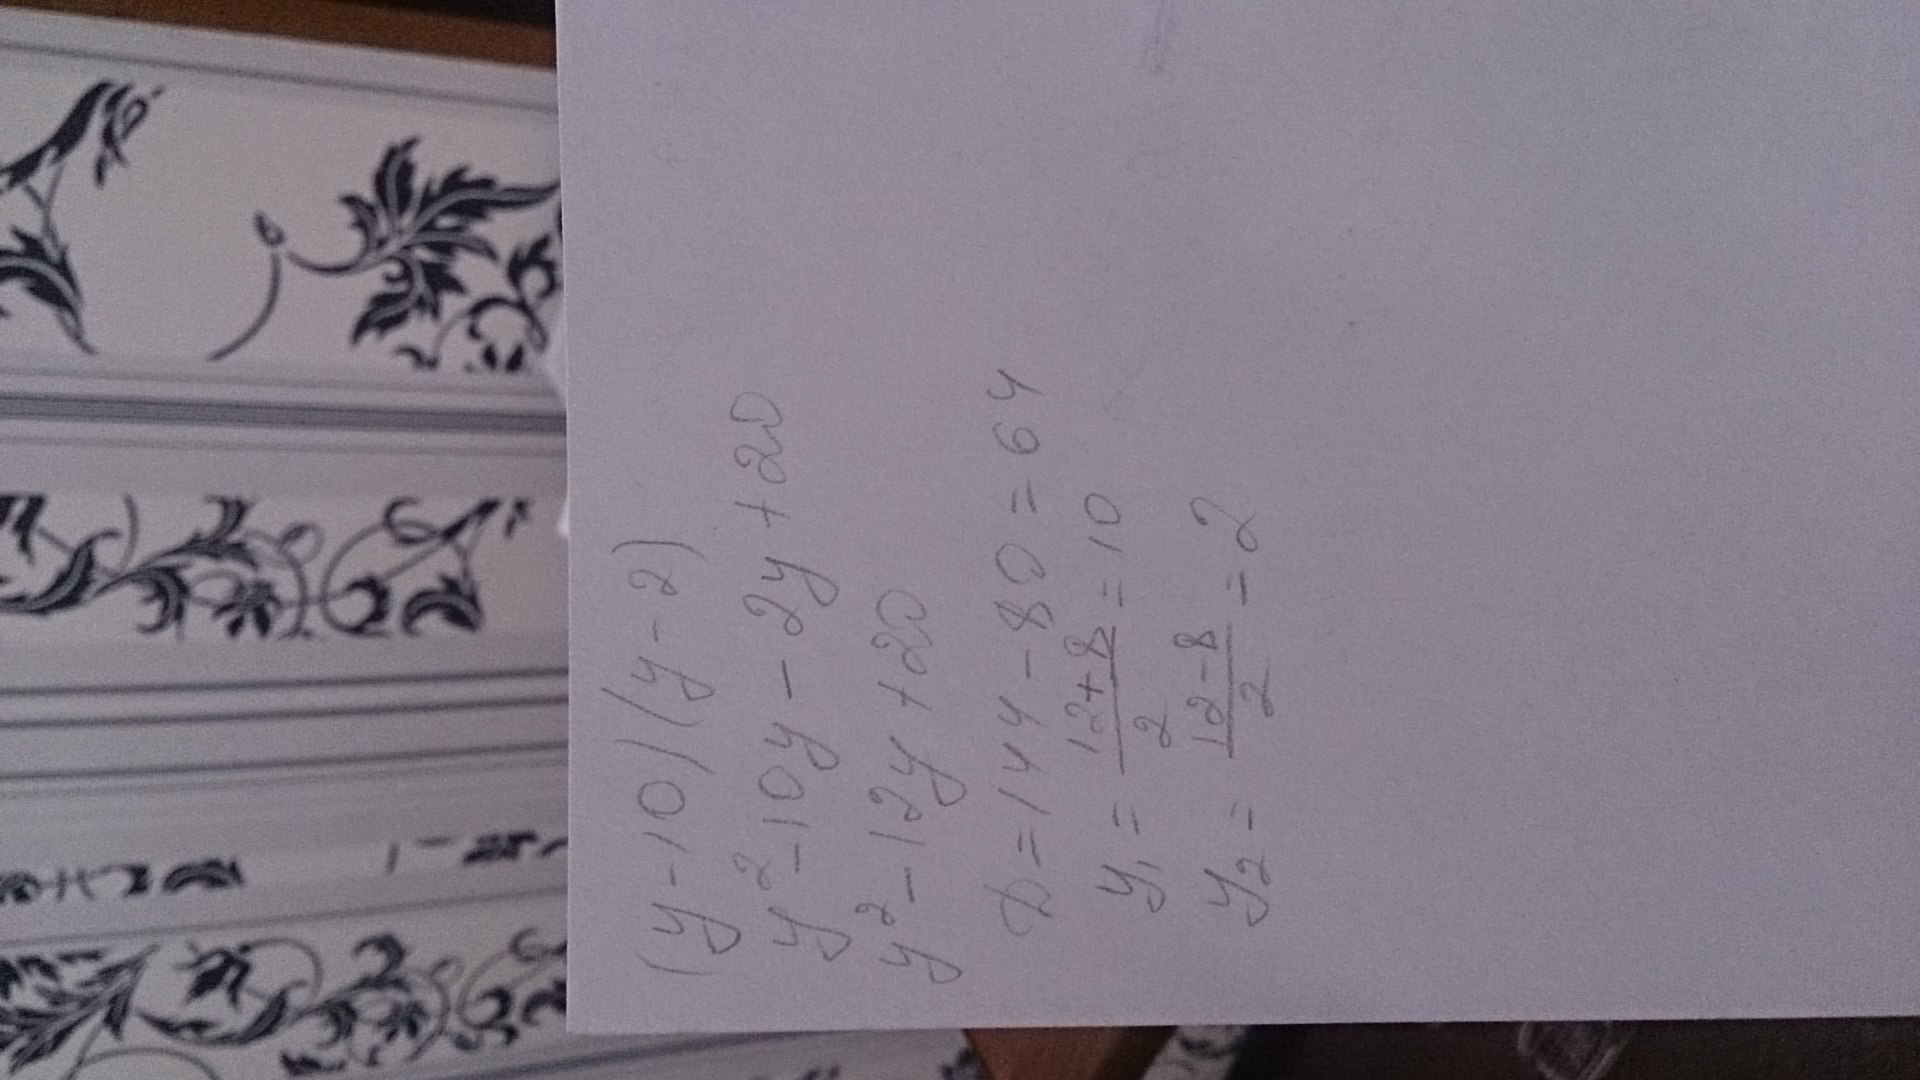 (y-10)(y-2)
y²-10y-2y+20
y²-12y+20
D=144-80=64
y₁=\frac{12+8}{2}=10
y₂=\frac{12-8}{2}=2